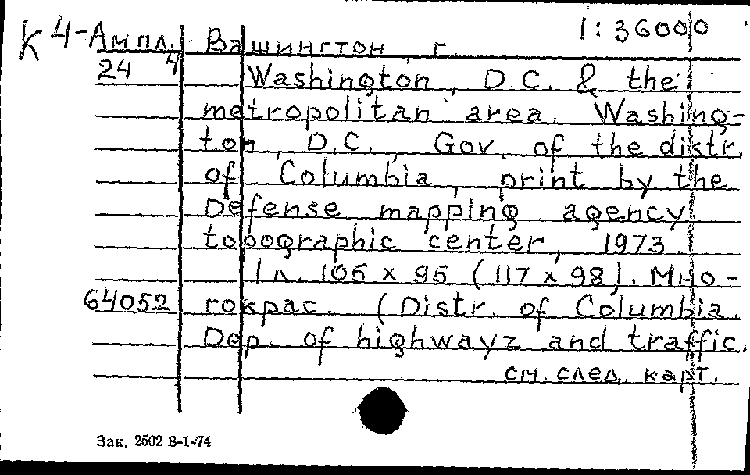 К 4-Ампл. Вашингтон, г. 1:36000
24 4 Washington, D.C. & the
metropolitan area. Washing-
ton, D.C., Gov. of the distr.
of Columbia, print by the
Defense mapping agency
topographic center, 1973.
1 л. 106 x 95 (117 x 98). Мно-
64052 гокрас. (Distr. of Columbia.
Dep. of highwayz and traffic.
см. след. карт.
Зак. 2502 В-1-74